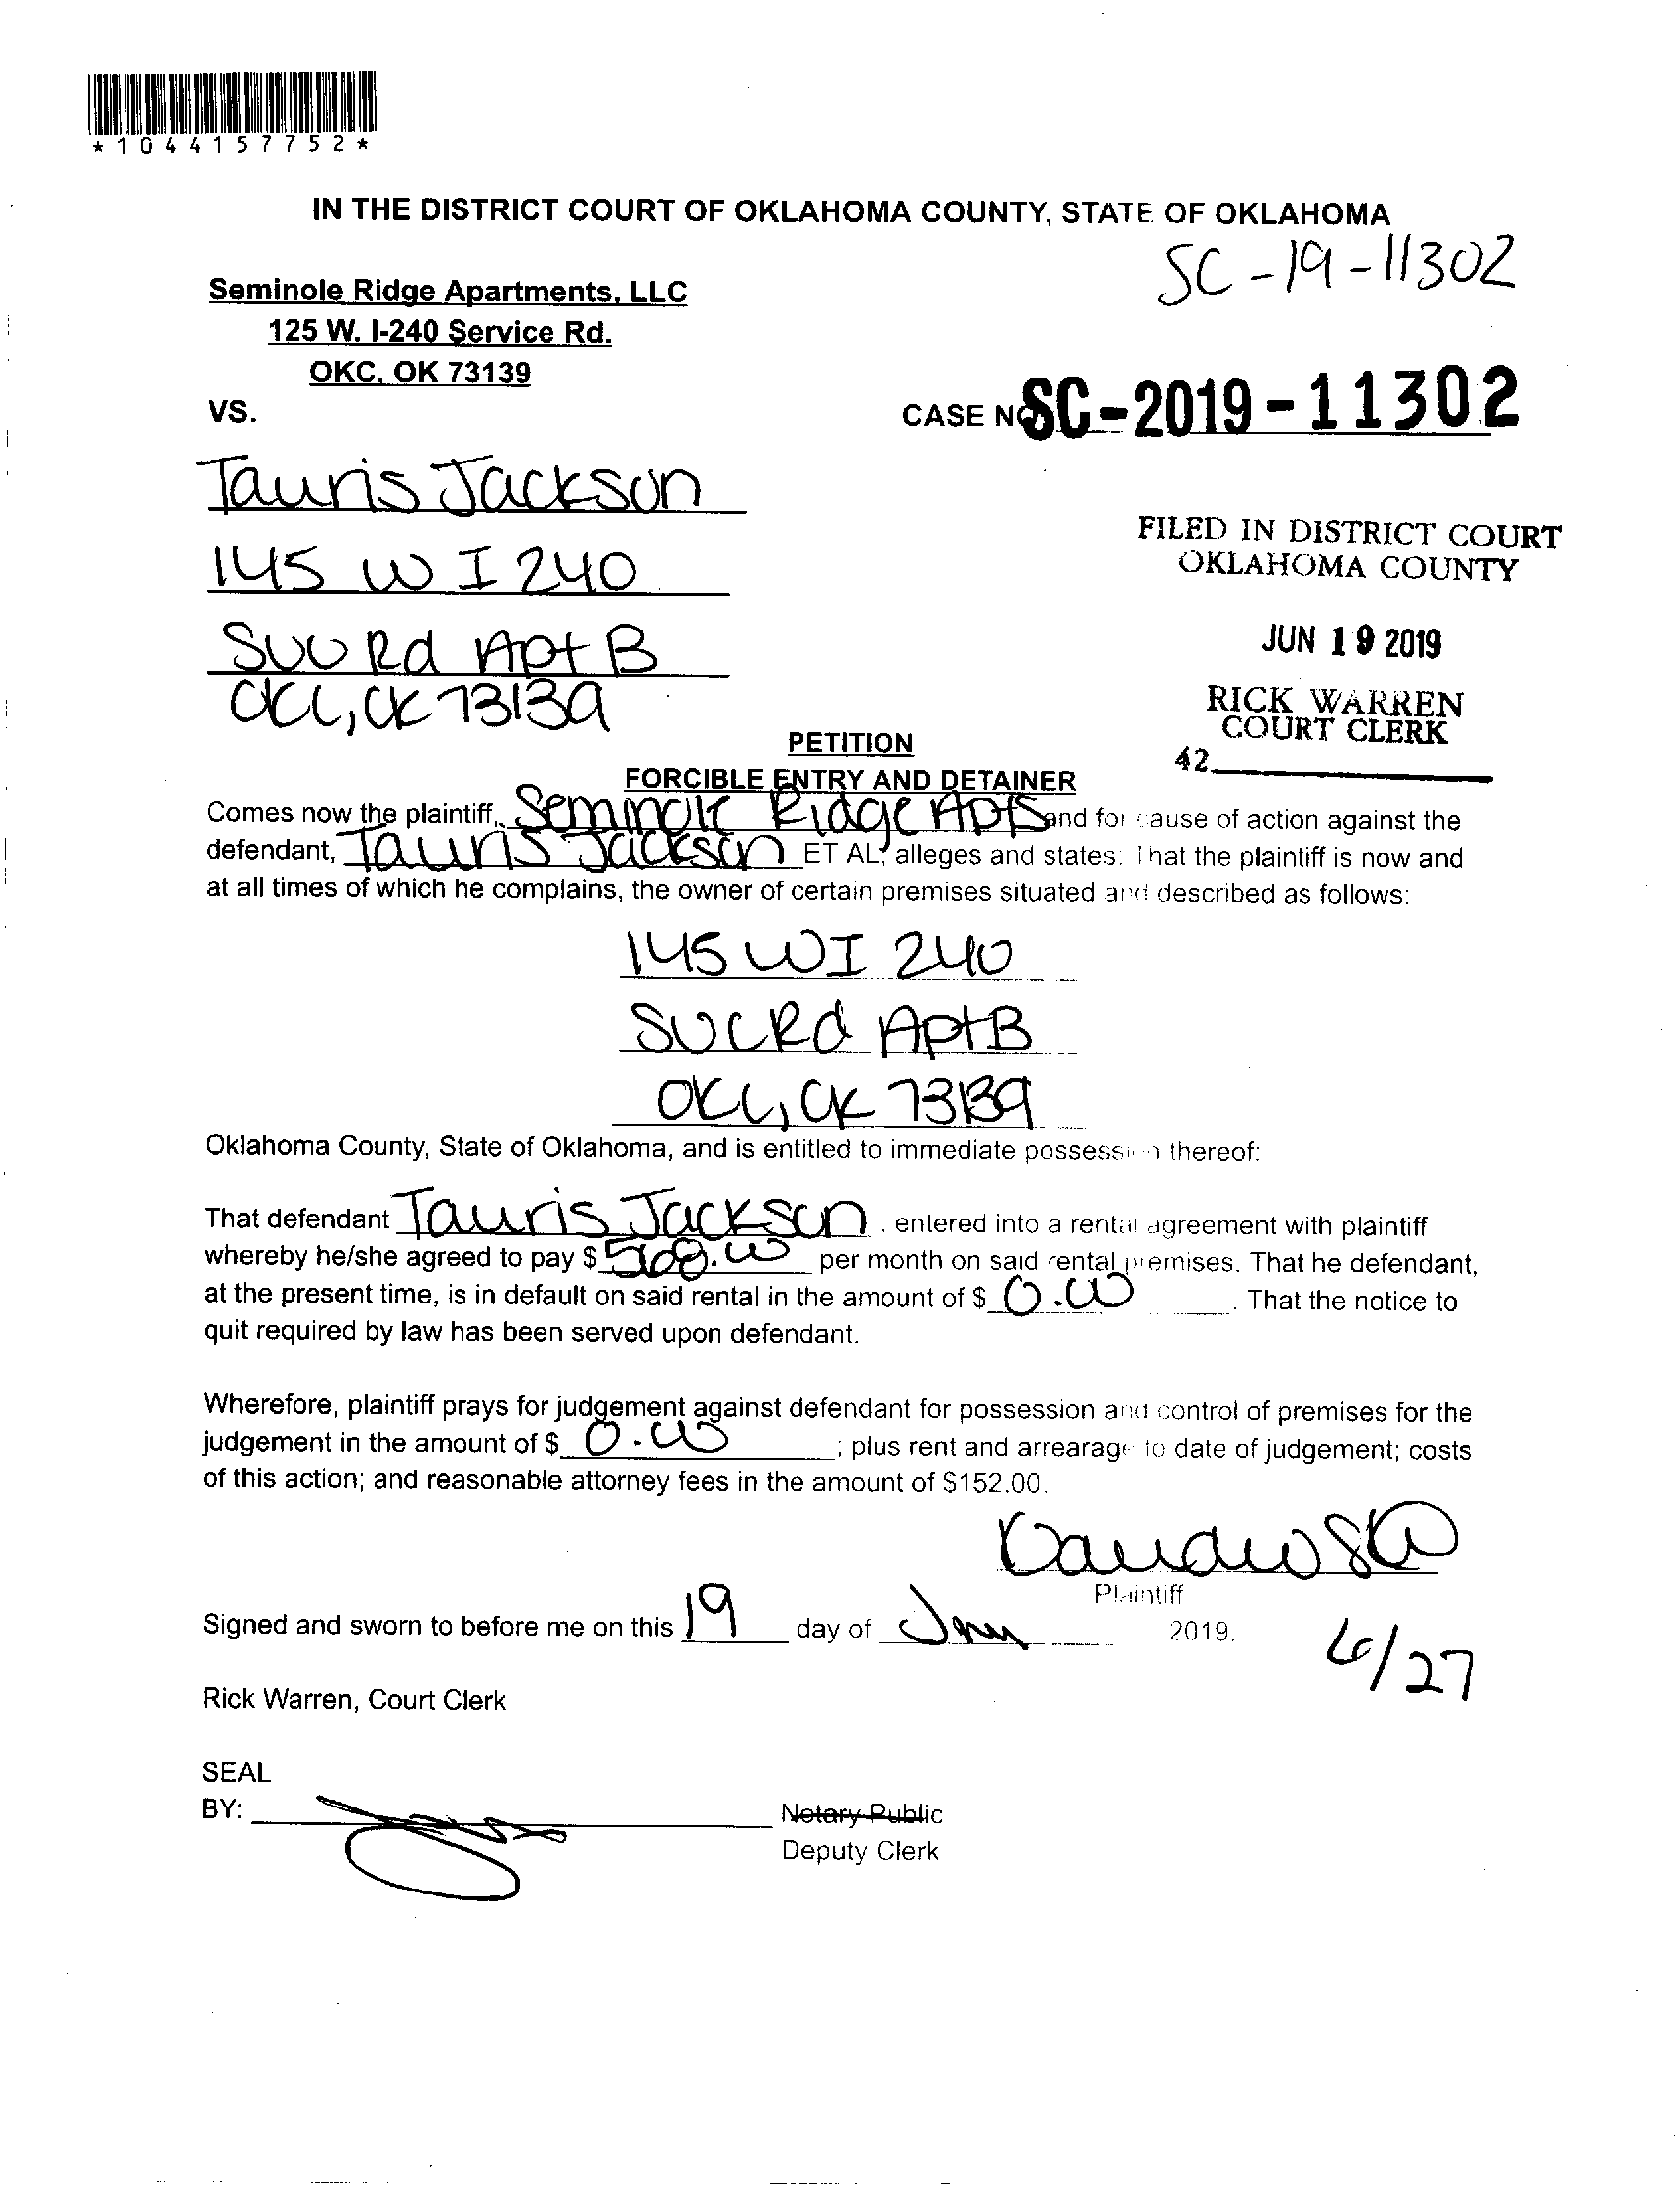 *1044157752*
IN THE DISTRICT COURT OF OKLAHOMA COUNTY, STATE OF OKLAHOMA
SC-19-11302
Seminole Ridge Apartments, LLC
125 W. I-240 Service Rd.
OKC, OK 73139
VS.
CASE NO SC-2019-11302
Tauris Jackson
145 W I 240
Svc Rd Apt B
OKC, OK 73139
FILED IN DISTRICT COURT
OKLAHOMA COUNTY
JUN 19 2019
RICK WARREN
COURT CLERK
42
PETITION
FORCIBLE ENTRY AND DETAINER
Comes now the plaintiff, Seminole Ridge Apts and for cause of action against the
defendant, Tauris Jackson ET AL, alleges and states: That the plaintiff is now and
at all times of which he complains, the owner of certain premises situated and described as follows:
145 W I 240
Svc Rd Apt B
OKC, OK 73139
Oklahoma County, State of Oklahoma, and is entitled to immediate possession thereof:
That defendant Tauris Jackson, entered into a rental agreement with plaintiff
whereby he/she agreed to pay $ 568.00 per month on said rental premises. That he defendant,
at the present time, is in default on said rental in the amount of $ 0.00. That the notice to
quit required by law has been served upon defendant.
Wherefore, plaintiff prays for judgement against defendant for possession and control of premises for the
judgement in the amount of $ 0.00; plus rent and arrearage to date of judgement; costs
of this action; and reasonable attorney fees in the amount of $152.00.
Plaintiff
Signed and sworn to before me on this 19 day of Jun 2019.
6/27
Rick Warren, Court Clerk
SEAL
BY: Notary Public
Deputy Clerk